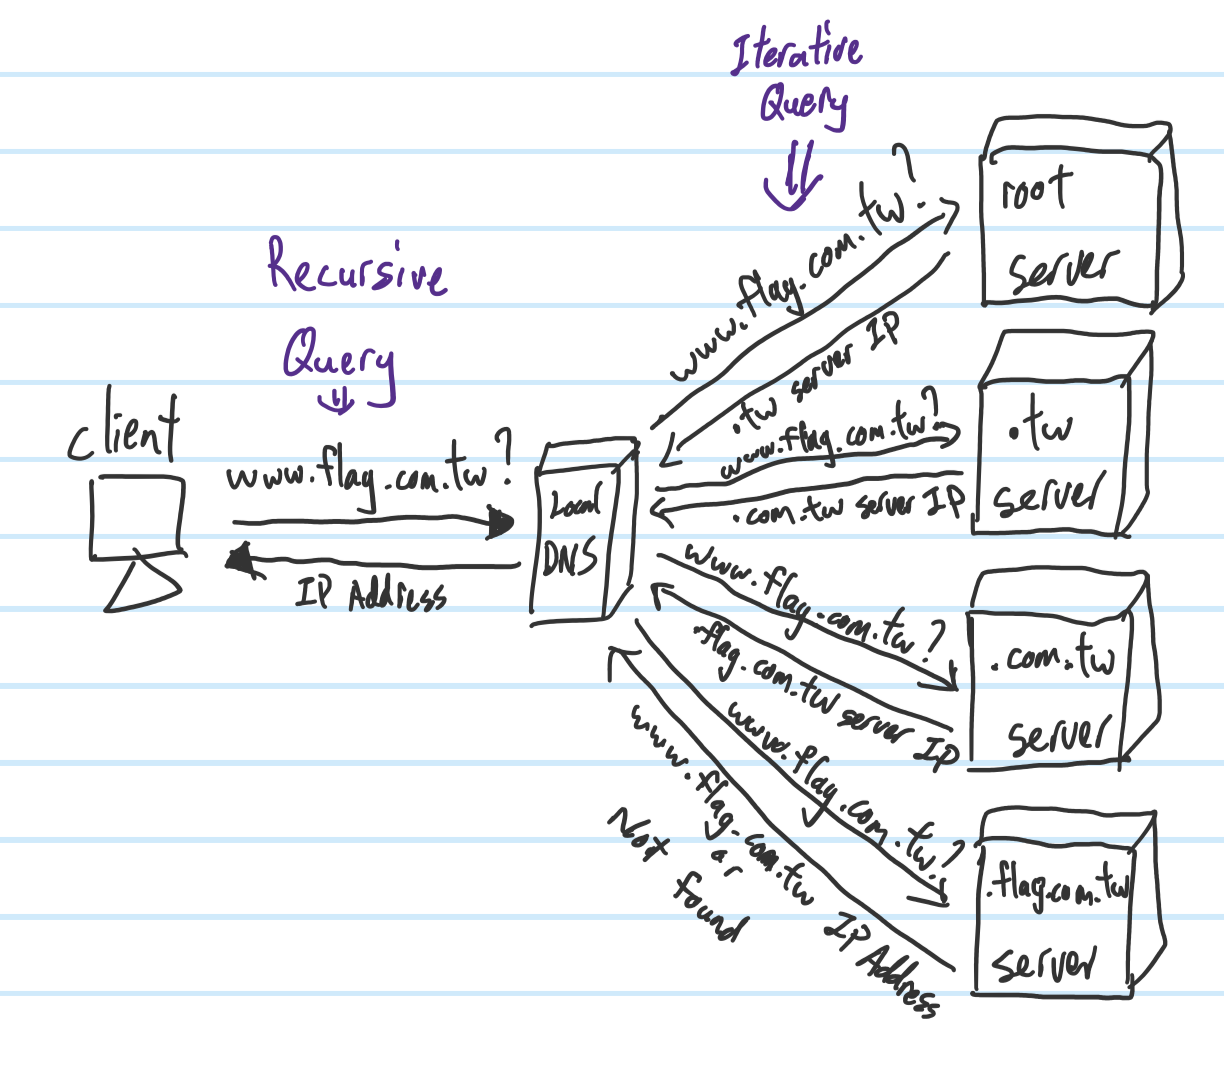 Iterative
Query
Recursive
Query
client
www.flag.com.tw?
IP Address
Local
DNS
www.flag.com.tw?
.tw server IP
root
server
www.flag.com.tw?
.com.tw server IP
.tw
server
www.flag.com.tw?
.flag.com.tw server IP
.com.tw
server
www.flag.com.tw.?
www.flag.com.tw IP Address
or
Not found
.flag.com.tw
server